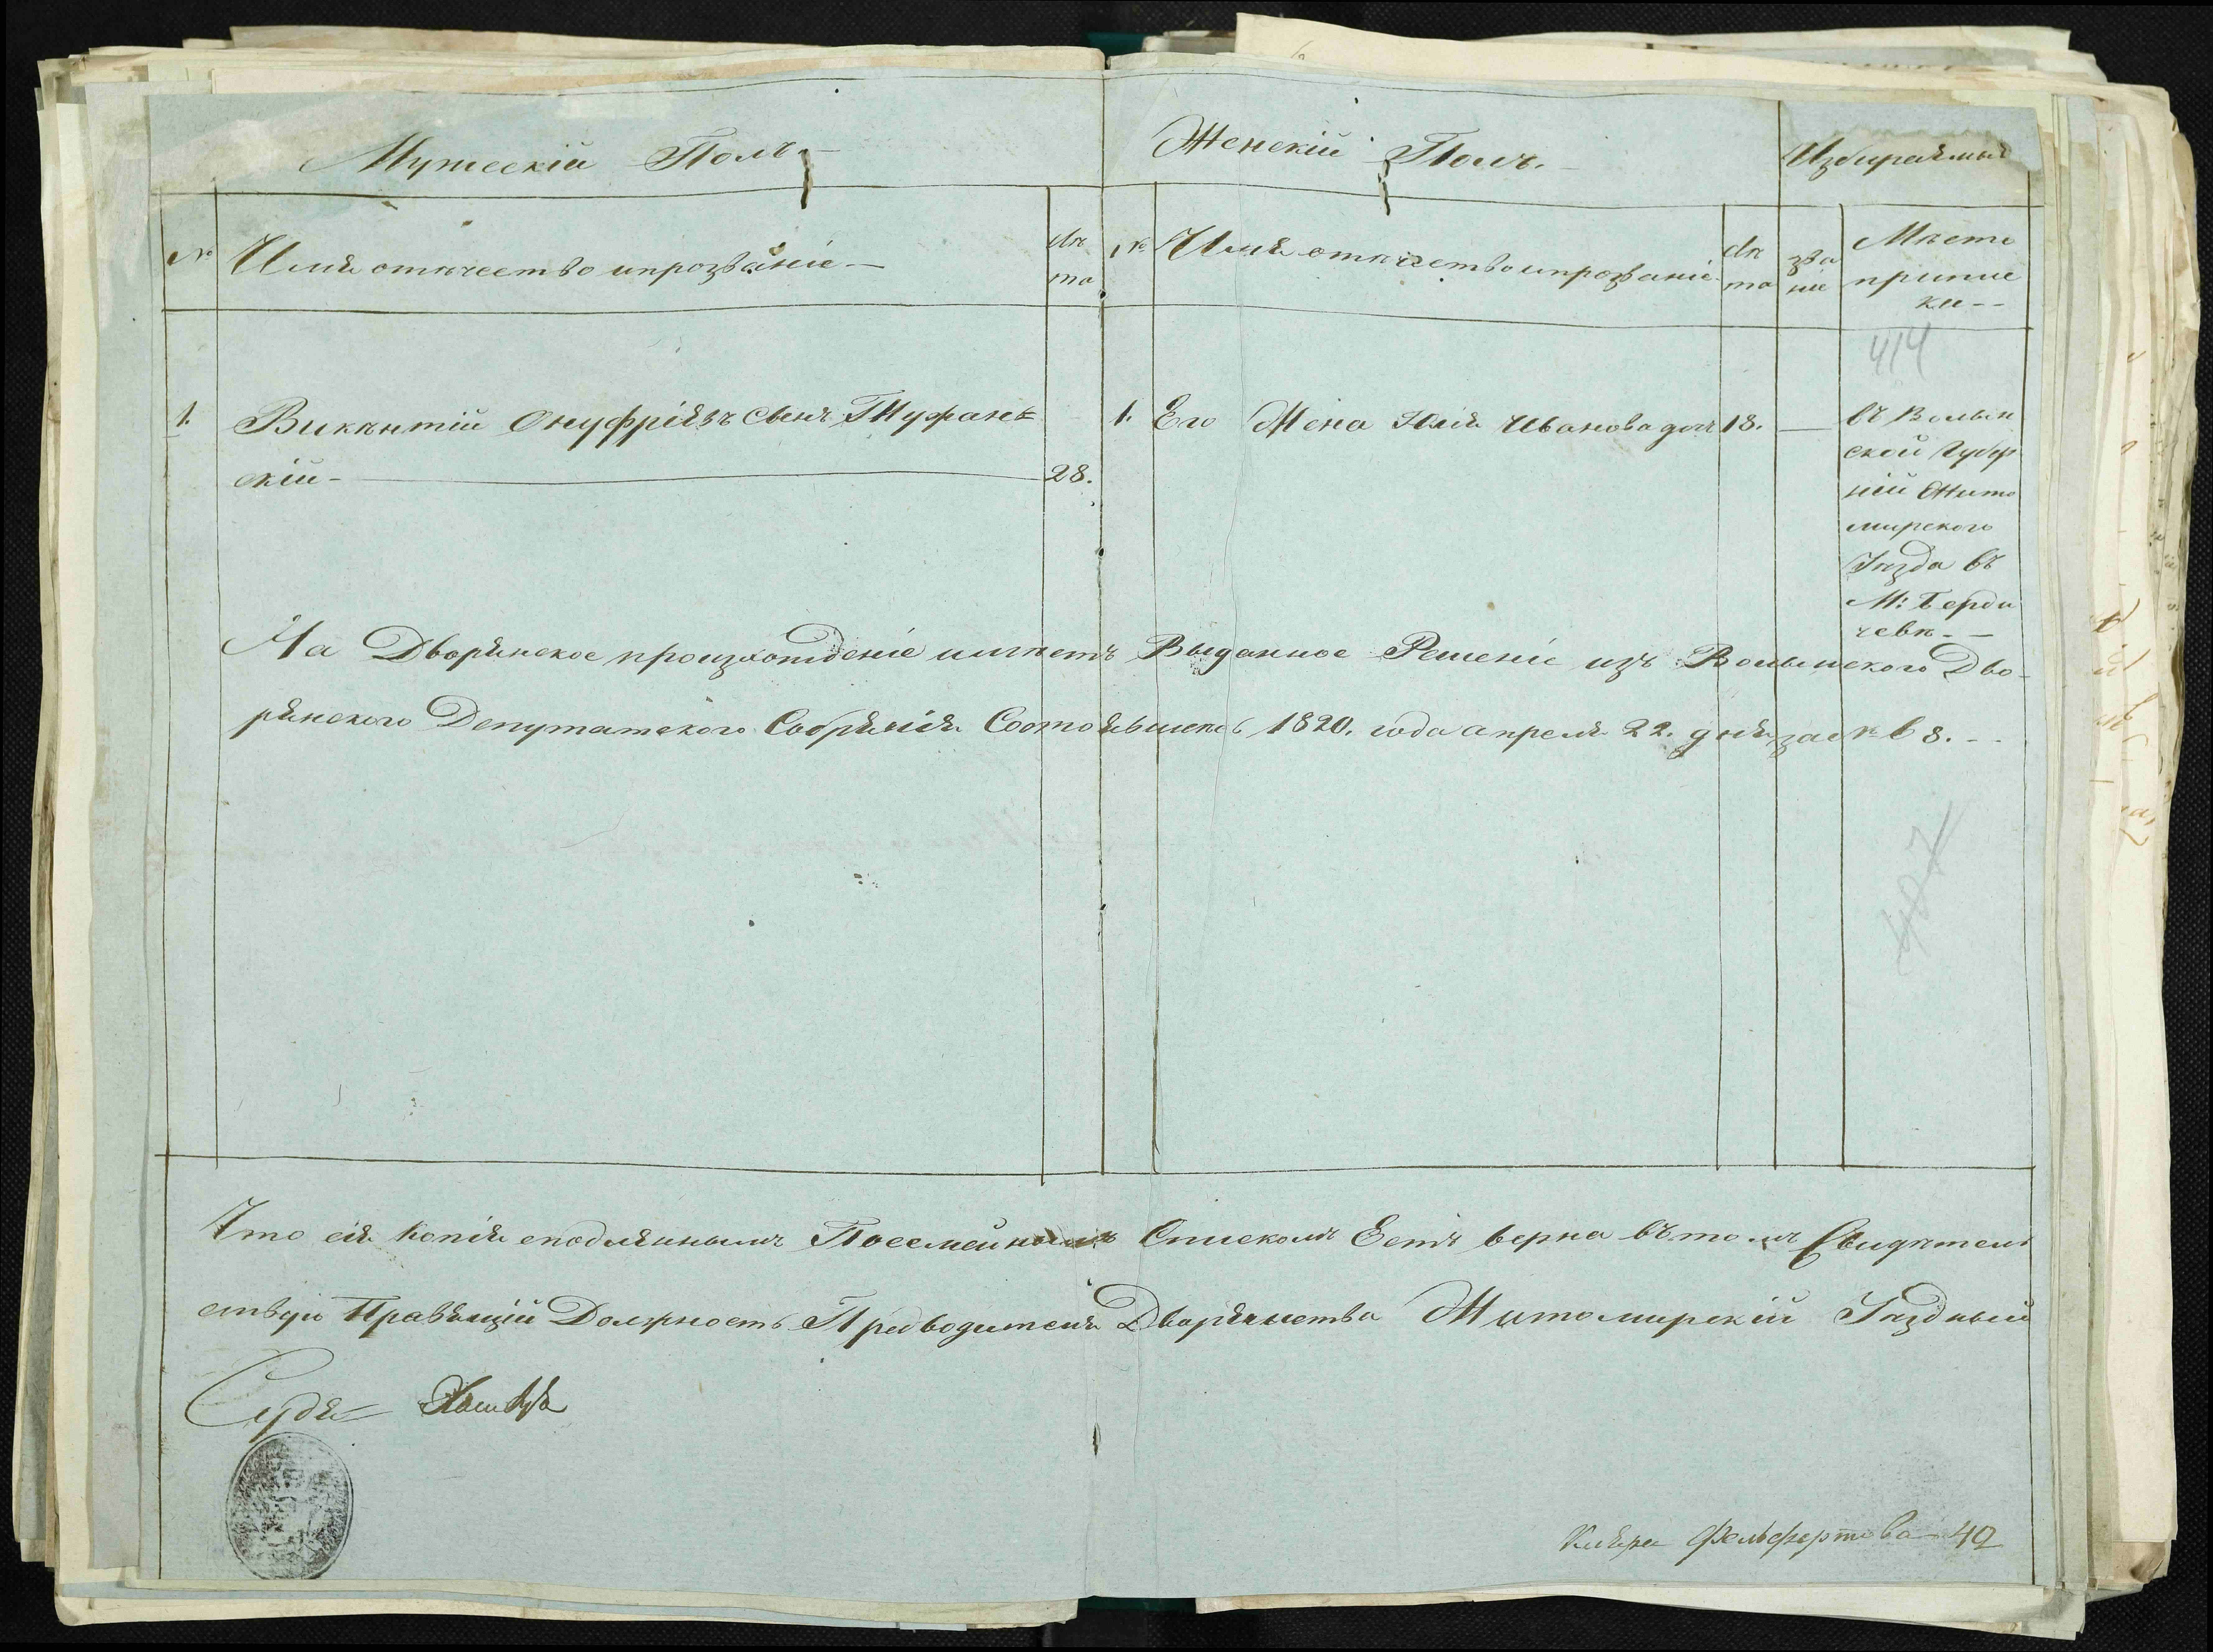 Мужескій Полъ
Женскій Полъ.
Избираемые
№
Имя отѣчество и прозваніе
Лѣ
та
№
Имя отѣчество и прозваніе
Лѣ
та
зва
ніе
Мѣсто
приписки
414
1.
Викѣнтій Онуфріевъ сынъ Туфань
скій
28.
1.
Его Жена Юлія Иванова доч
18.
въ Волын
ской Губер
ніи Жито
мирского
Уѣзда въ
М: Берди
чевѣ
На Дворянское произхождѣніе имѣетъ Выданное Решеніе изъ Волынского Дво-
рянского Депутатского Собранія Состоявшеесь 1820. года апреля 22. дня за №
407
Что сія копія сподляннымъ Посемейнымъ Спискомъ Есть верна въ томъ Свидѣтель
ствую Правящій Должность Предводителя Дворянства Житомирскій Уѣздный
Судья
42